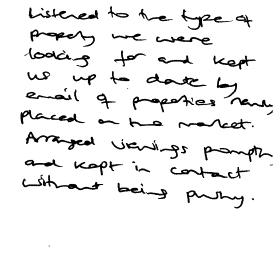 Listened to the type of
property we were
looking for and kept
us up to date by
email of properties newly
placed on the market.
Arranged viewings promptly
and kept in contact
without being pushy.